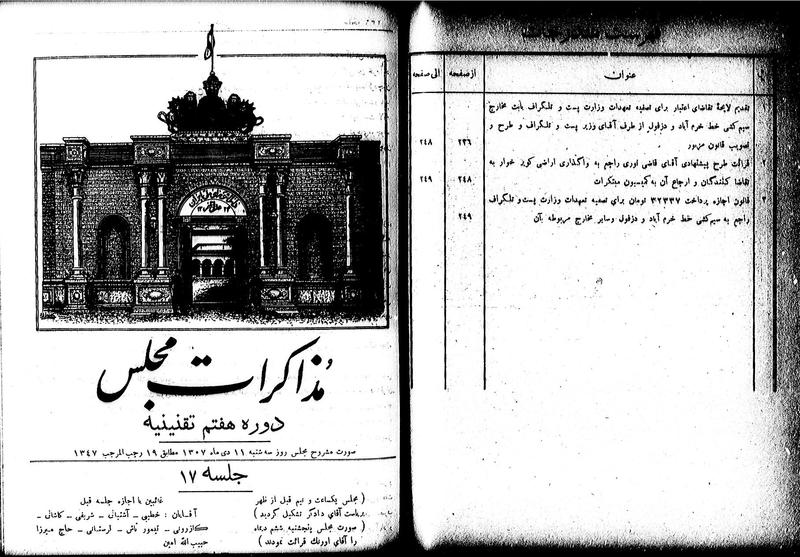 مذاکرات مجلس
دوره هفتم تقنینیه
صورت مشروح مجلس روز سه شنبه ۱۱ دی ماه ۱۳۰۷ مطابق ۱۹ رجب المرجب ۱۳۴۷
جلسه ۱۷
( مجلس یکساعت و نیم قبل از ظهر
بریاست آقای دادگر تشکیل گردید )
( صورت مجلس پنجشنبه ششم دیماه
را آقای اورنك قرائت نمودند )
غائبین با اجازه جلسه قبل
آقایان : خطیبی ـ آشتیانی ـ شریفی ـ کاشانی ـ
کازرونی ـ تیمور تاش ـ لرستانی ـ حاج میرزا
حبیب الله امین
فهرست مندرجات
عنوان
از صفحه
الی صفحه
۱
تقدیم لایحهٔ تقاضای اعتبار برای تصفیه تعهدات وزارت پست و تلگراف بابت مخارج
سیم کشی خط خرم آباد و دزفول از طرف آقای وزیر پست و تلگراف و طرح و
تصویب قانون مزبور
۲۳۶
۲۴۸
۲
قرائت طرح پیشنهادی آقای قاضی نوری راجع به واگذاری اراضی کویر خوار به
تقاضا کنندگان و ارجاع آن به کمیسیون مبتکرات
۲۴۸
۲۴۹
۳
قانون اجازه پرداخت ۳۲۳۳۷ تومان برای تصفیه تعهدات وزارت پست و تلگراف
راجع به سیم کشی خط خرم آباد و دزفول وسایر مخارج مربوطه بآن
۲۴۹